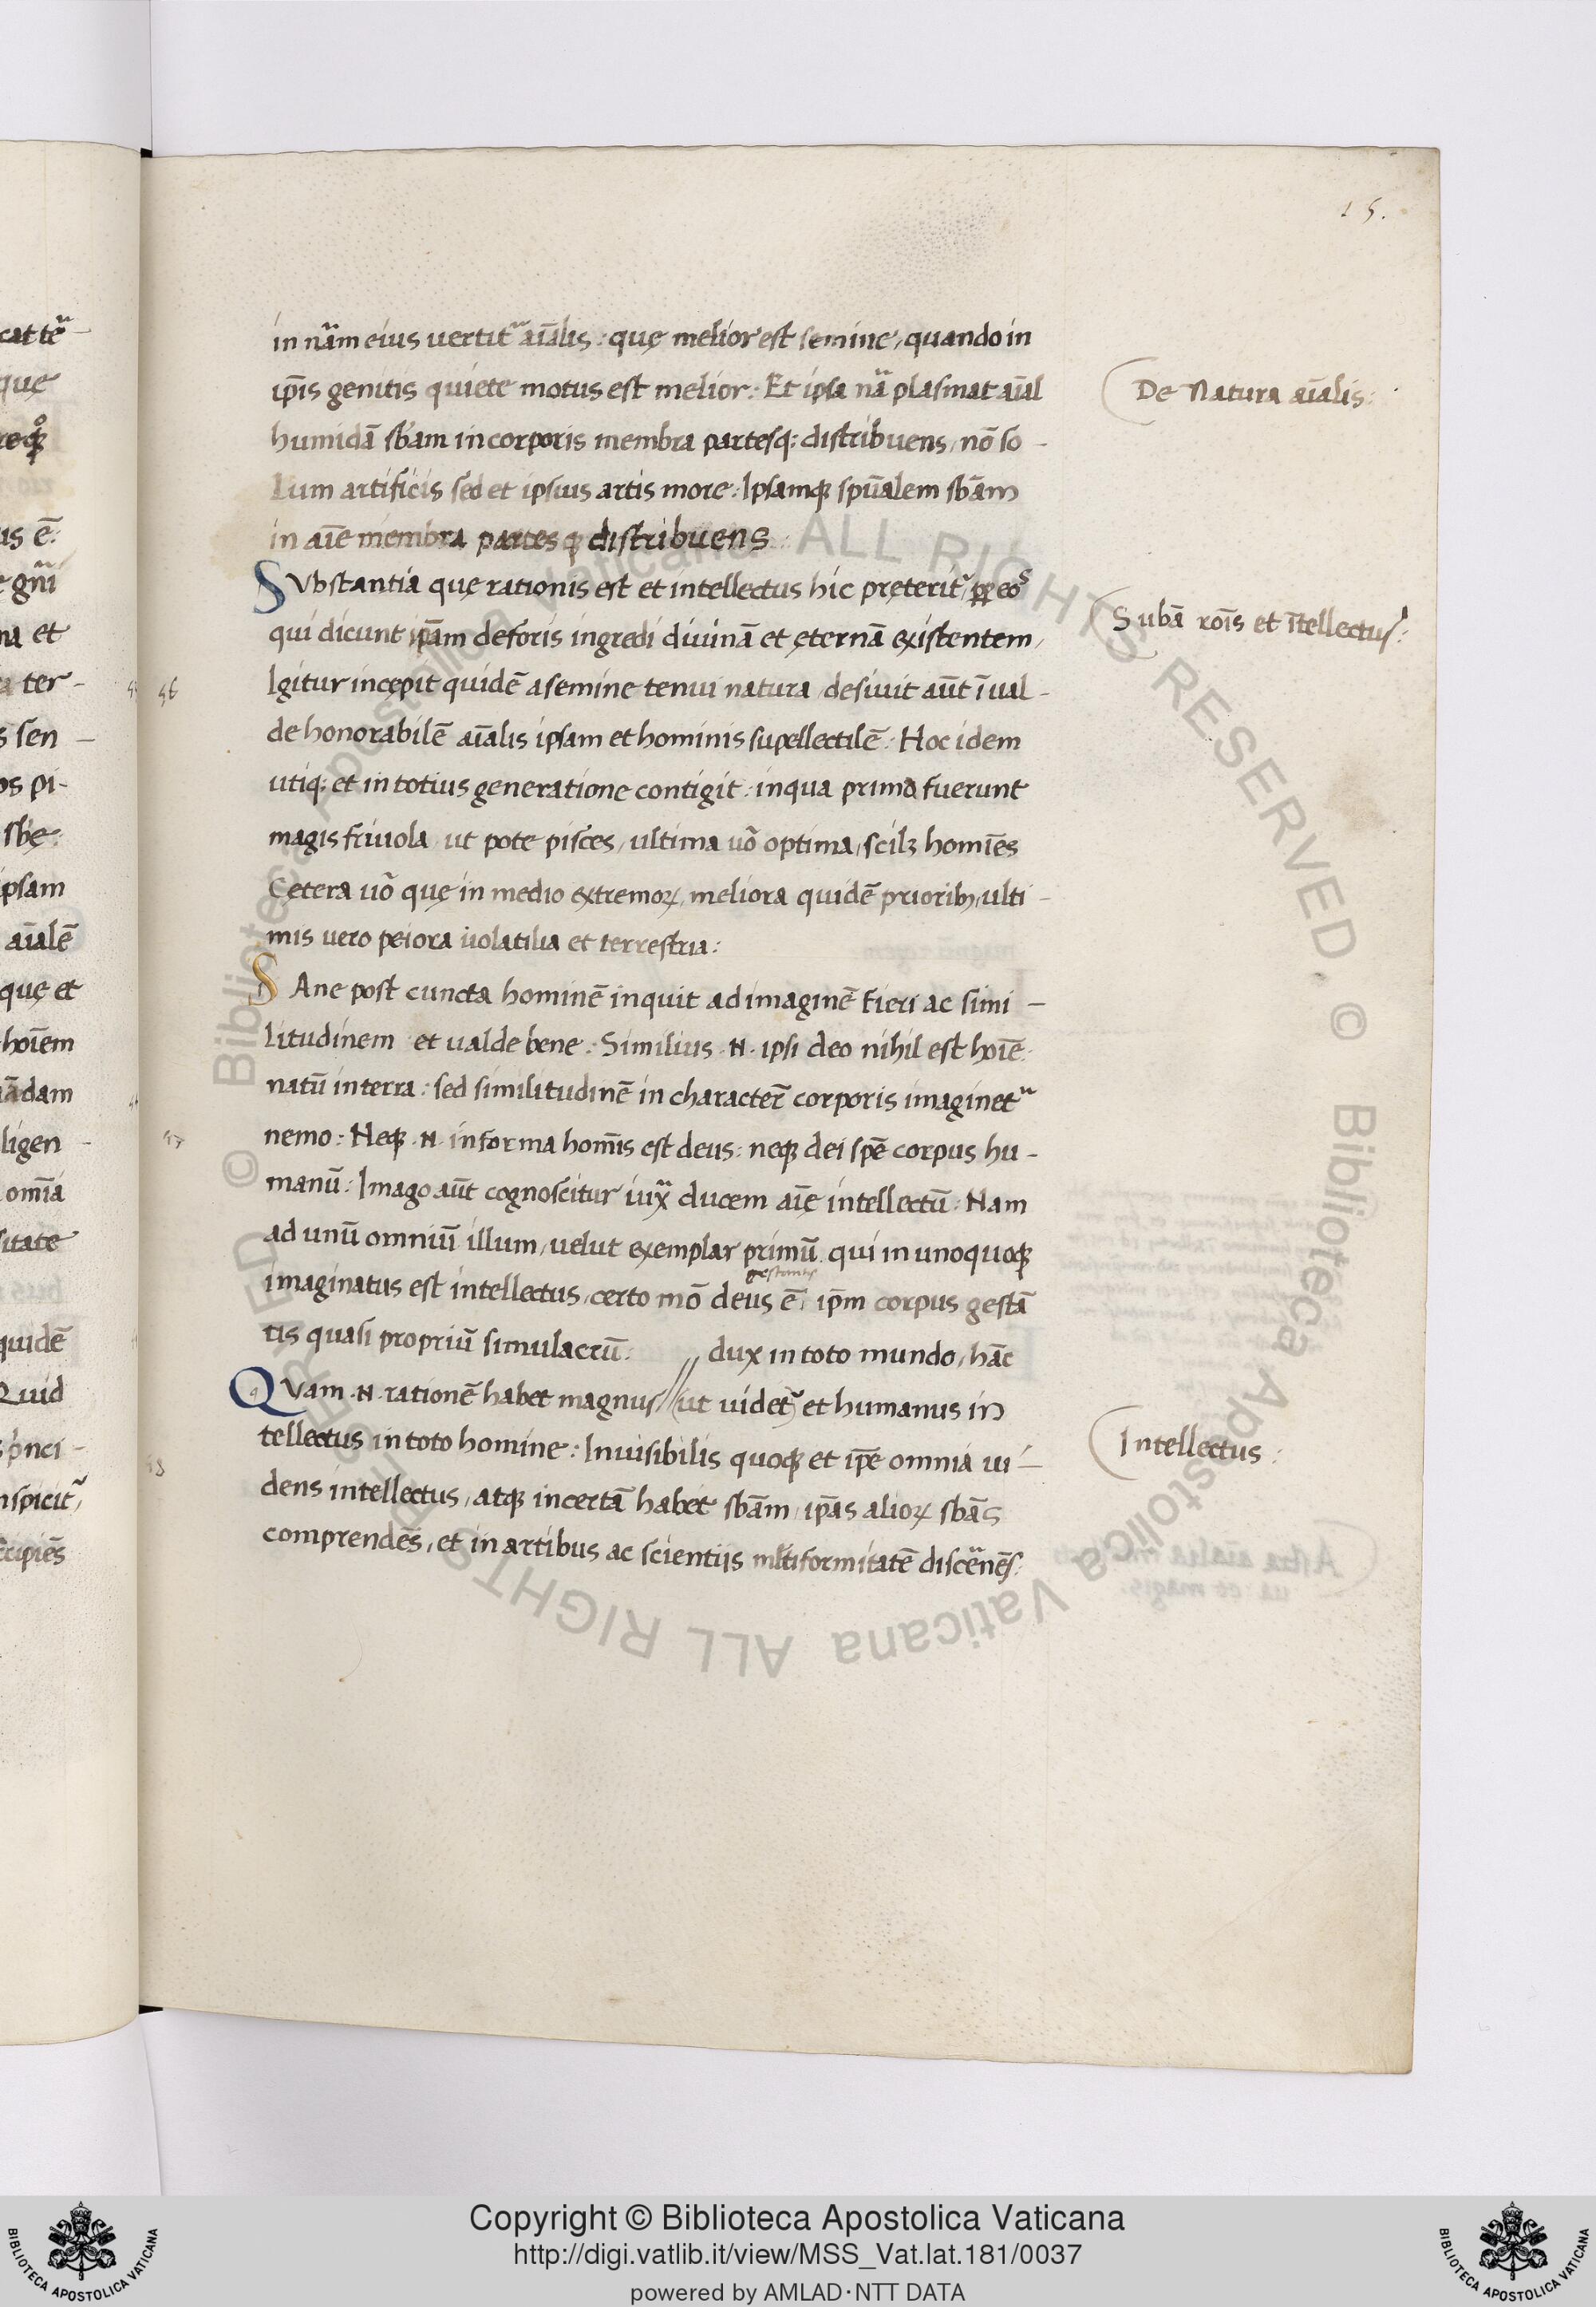 15.
in nãm eius vertit᷑ aı̃alis : quę melior est semine, quando in
ip̃is genitis quiete motus est melior : Et ipsa nã plasmat aı̃al
De Natura aı̃alis :
humidã sb̃am in corporis membra partesq; distribuens, nõ so -
lum artificis sed et ipsius artis more : Ipsamqꝫ spũalem sb̃am
in aı̃e membra partesqꝫ distribuens :
SVbstantia quę rationis est et intellectus hic pręterit᷑, ꝓꝑ eos
Subã rõis et ĩtellectus :
qui dicunt ip̃am deforis ingredi diuinã et ęternã existentem,
56
Igitur incępit quidẽ a semine tenui natura, desiuit aũt ĩ ual -
de honorabilẽ aı̃alis ipsam et hominis supellectilẽ : Hoc idem
utiq; et in totius generatione contigit : in qua primo fuerunt
magis friuola ut pote pisces, ultima uõ optima, scilꝫ homı̃es
Cętera uõ quę in medio extremoꝝ, meliora quidẽ prioribꝫ, ulti -
mis vero peiora uolatilia et terrestria :
SAne post cuncta hominẽ inquit ad imaginẽ fieri ac simi -
litudinem et ualde bene : Similius .N. ipsi deo nihil est hoı̃e
natũ in terra : sed similitudinẽ in characterẽ corporis imaginet᷑
57
nemo : Neqꝫ .N. in forma homı̃s est deus : neqꝫ dei spẽ corpus hu -
manũ : Imago aũt cognoscitur iuxᷓ ducem aı̃ę intellectũ : Nam
ad unũ omniũ illum, uelut exemplar primũ qui in unoquoqꝫ
gestantis
imaginatus est intellectus, certo mõ deus ẽ, ip̃m corpus gestã
tis quasi propriũ simulacrũ : // dux in toto mundo, hãc
QVam .N. rationẽ habet magnus // (ut uidet᷑) et humanus in
Intellectus :
tellectus in toto homine : Inuisibilis quoqꝫ et ip̃e omnia ui -
58
dens intellectus, atqꝫ incertã habet sb̃am, ip̃as alioꝝ sb̃as
comprendẽs, et in artibus ac scientijs ml̃tiformitatẽ discẽnẽs :
Copyright © Biblioteca Apostolica Vaticana
http://digi.vatlib.it/view/MSS_Vat.lat.181/0037
powered by AMLAD·NTT DATA
BIBLIOTECA APOSTOLICA VATICANA
BIBLIOTECA APOSTOLICA VATICANA
© Biblioteca Apostolica Vaticana ALL RIGHTS RESERVED © Biblioteca Apostolica Vaticana ALL RIGHTS RESERVED